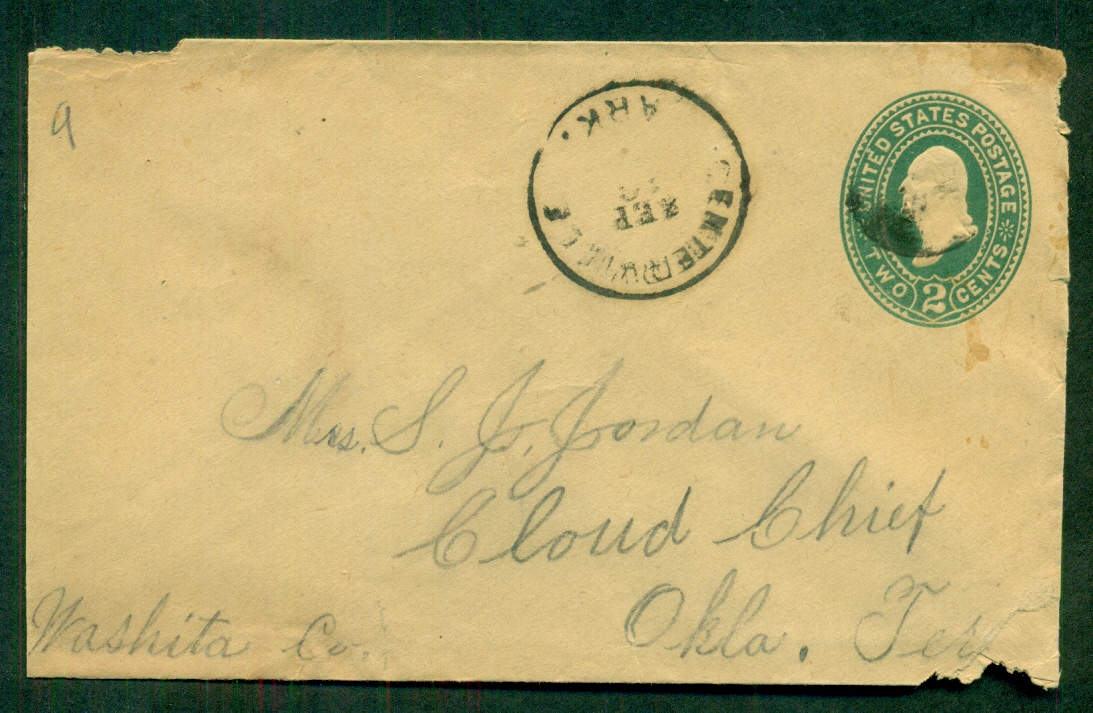 9
CENTERVILLE
ARK.
SEP
UNITED STATES POSTAGE
TWO 2 CENTS
Mrs. S. J. Jordan
Cloud Chief
Washita Co. Okla. Terr